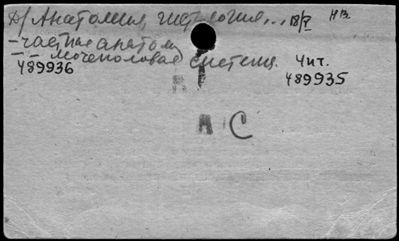 Д/ Анатомия, гистология... в/г НВ.
– частная анатом
– – мочеполовая система. Чит.
489936 489935
Н
Н С